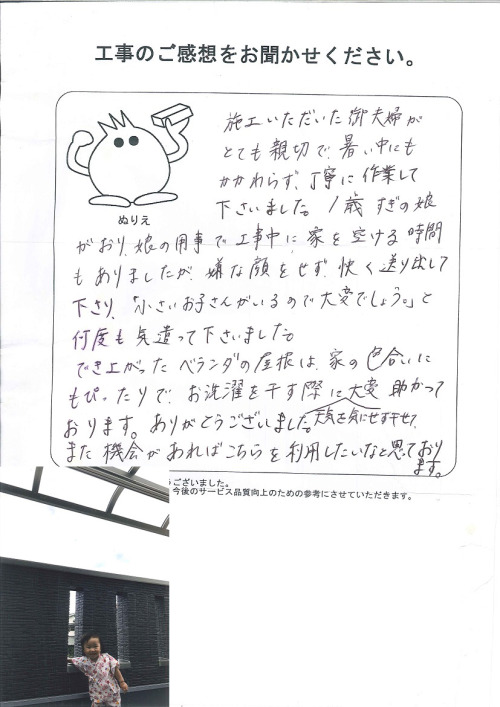 工事のご感想をお聞かせください。
ぬりえ
施工いただいた御夫婦が
とても親切で、暑い中にも
かかわらず、丁寧に作業して
下さいました。1歳すぎの娘
がおり、娘の用事で工事中に家を空ける時間
もありましたが、嫌な顔をせず、快く送り出して
下さり、「小さいお子さんがいるので大変でしょう。」と
何度も気遣って下さいました。
でき上がったベランダの屋根は、家の色合いに
もぴったりで、お洗濯を干す際に大変助かって
おります。ありがとうございました。天気を気にせず干せて、
また機会があればこちらを利用したいなと思っており
ます。
うございました。
今後のサービス品質向上のための参考にさせていただきます。